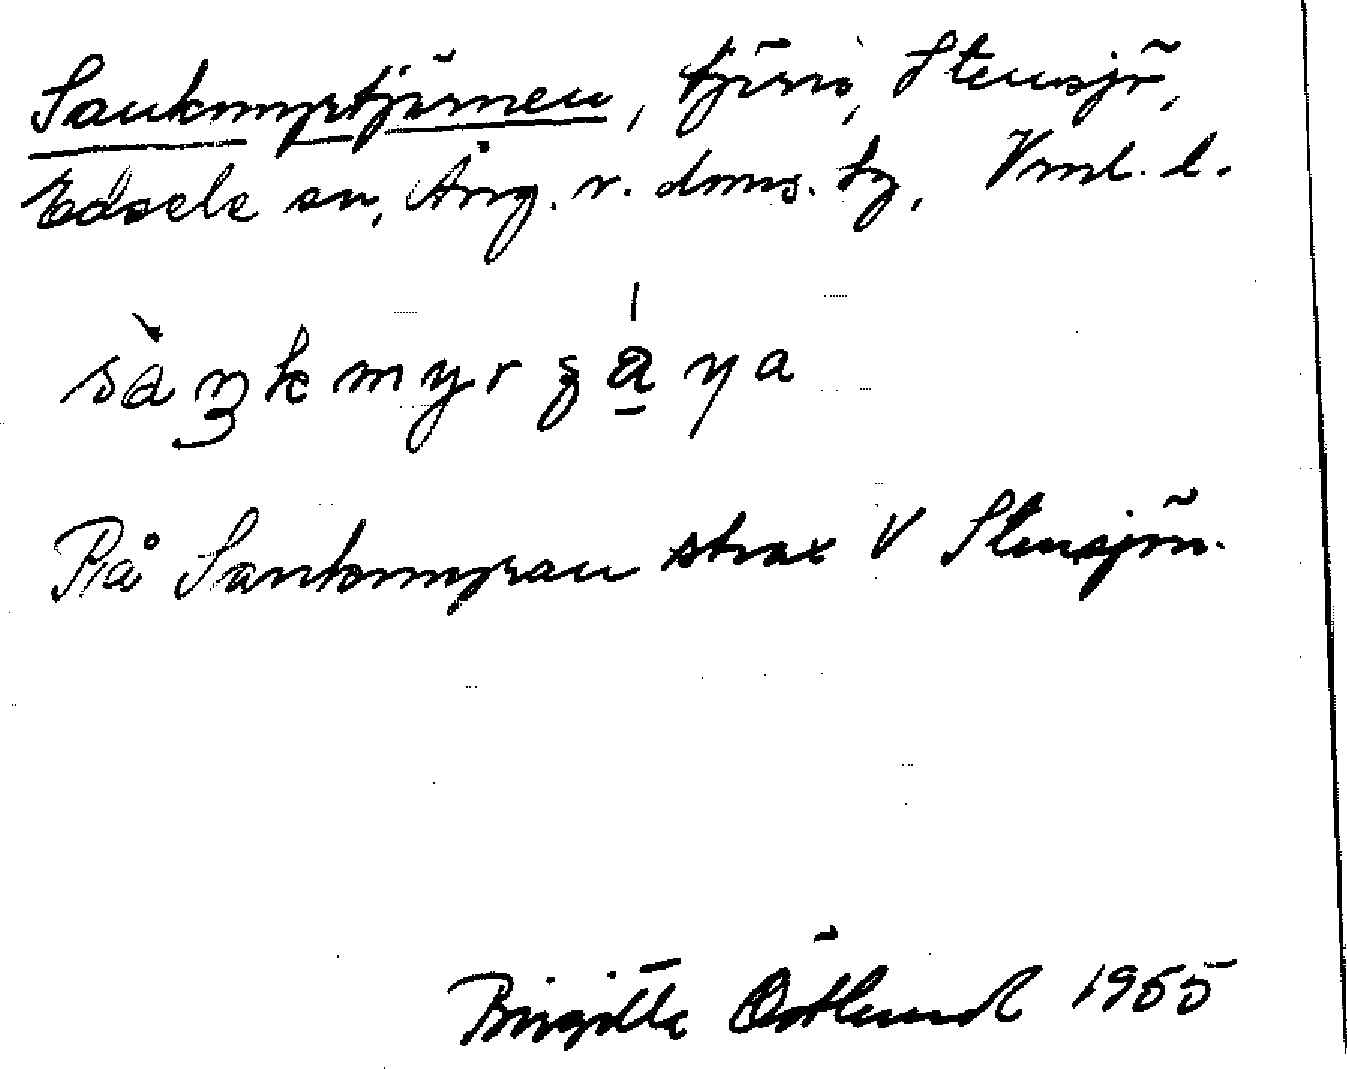 Sankmyrtjärnen, tjärn, Stensjö,
Edsele sn, Ång. v. doms. tg, Vnl. l.
På Sankmyran strax V Stensjön.
Birgitta Östlund 1955